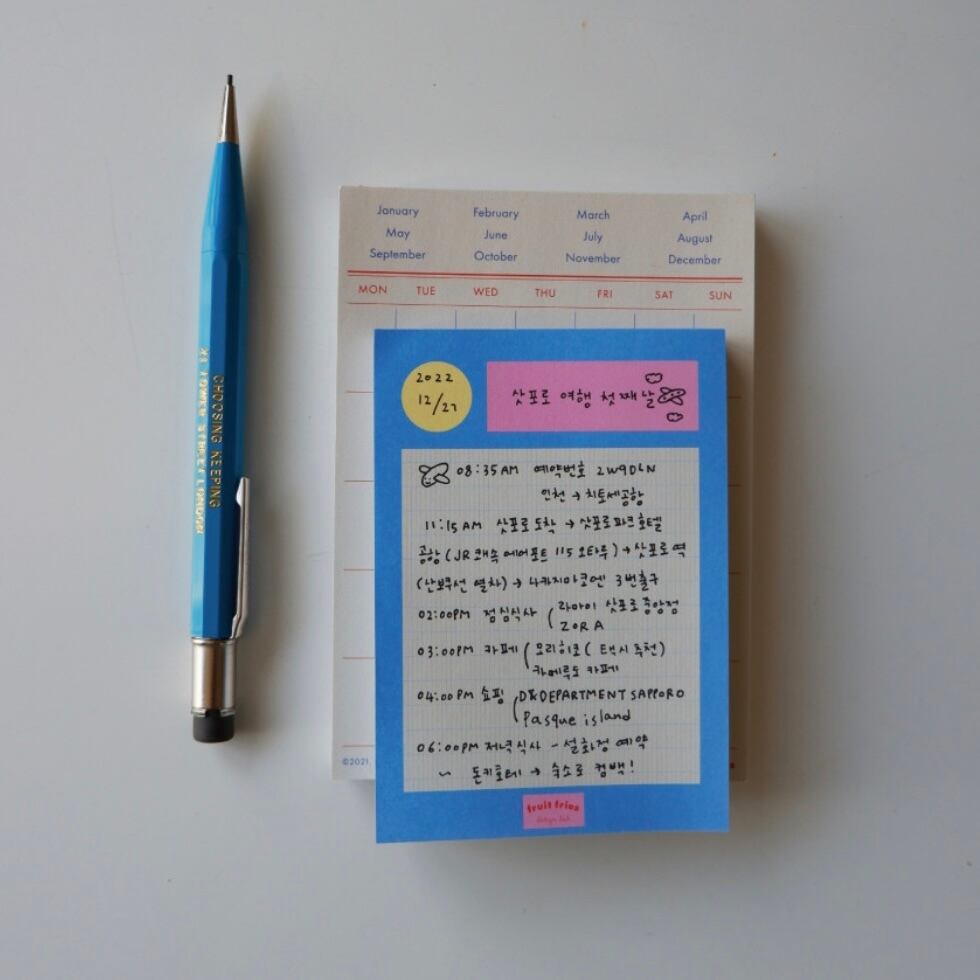 CHOOSING KEEPING
21 TOWER STREET LONDON
January February March April
May June July August
September October November December
MON TUE WED THU FRI SAT SUN
2022
12/27
삿포로 여행 첫째날
08:35AM 예약번호 2W9DLN
인천 → 치토세공항
11:15AM 삿포로 도착 → 삿포로파크호텔
공항 (JR 쾌속 에어포트 115 오타루) → 삿포로역
(난보쿠선 열차) → 나카지마코엔 3번출구
02:00PM 점심식사 ( 라마이 삿포로중앙점
ZORA
03:00PM 카페 ( 모리히코 ( 택시 추천)
카메루도 카페
04:00PM 쇼핑 ( D&DEPARTMENT SAPPORO
Pasque island
06:00PM 저녁식사 - 설화정 예약
~ 돈키호테 → 숙소로 컴백!
©2021.
fruit fries
design lab